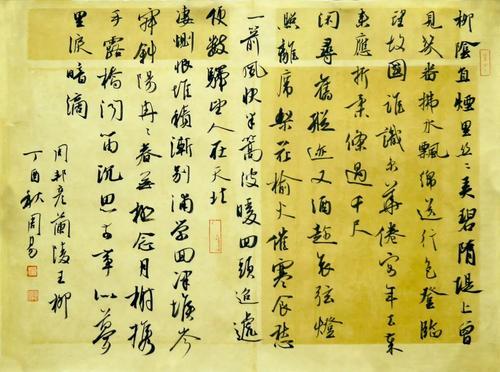 柳陰直煙里絲々弄碧隋堤上曾
見幾番拂水飄綿送行色登臨
望故國誰識京華倦客年去歲
來應折柔條過千尺
閑尋舊蹤跡又酒趁哀弦燈
照離席梨花榆火催寒食愁
一箭風快半篙波暖回頭迢遞
便數驛望人在天北
悽惻恨堆積漸別浦縈回津堠岑
寂斜陽冉々春無極念月榭攜
手露橋聞笛沉思前事似夢
里淚暗滴
周邦彥蘭陵王柳
丁酉秋周易